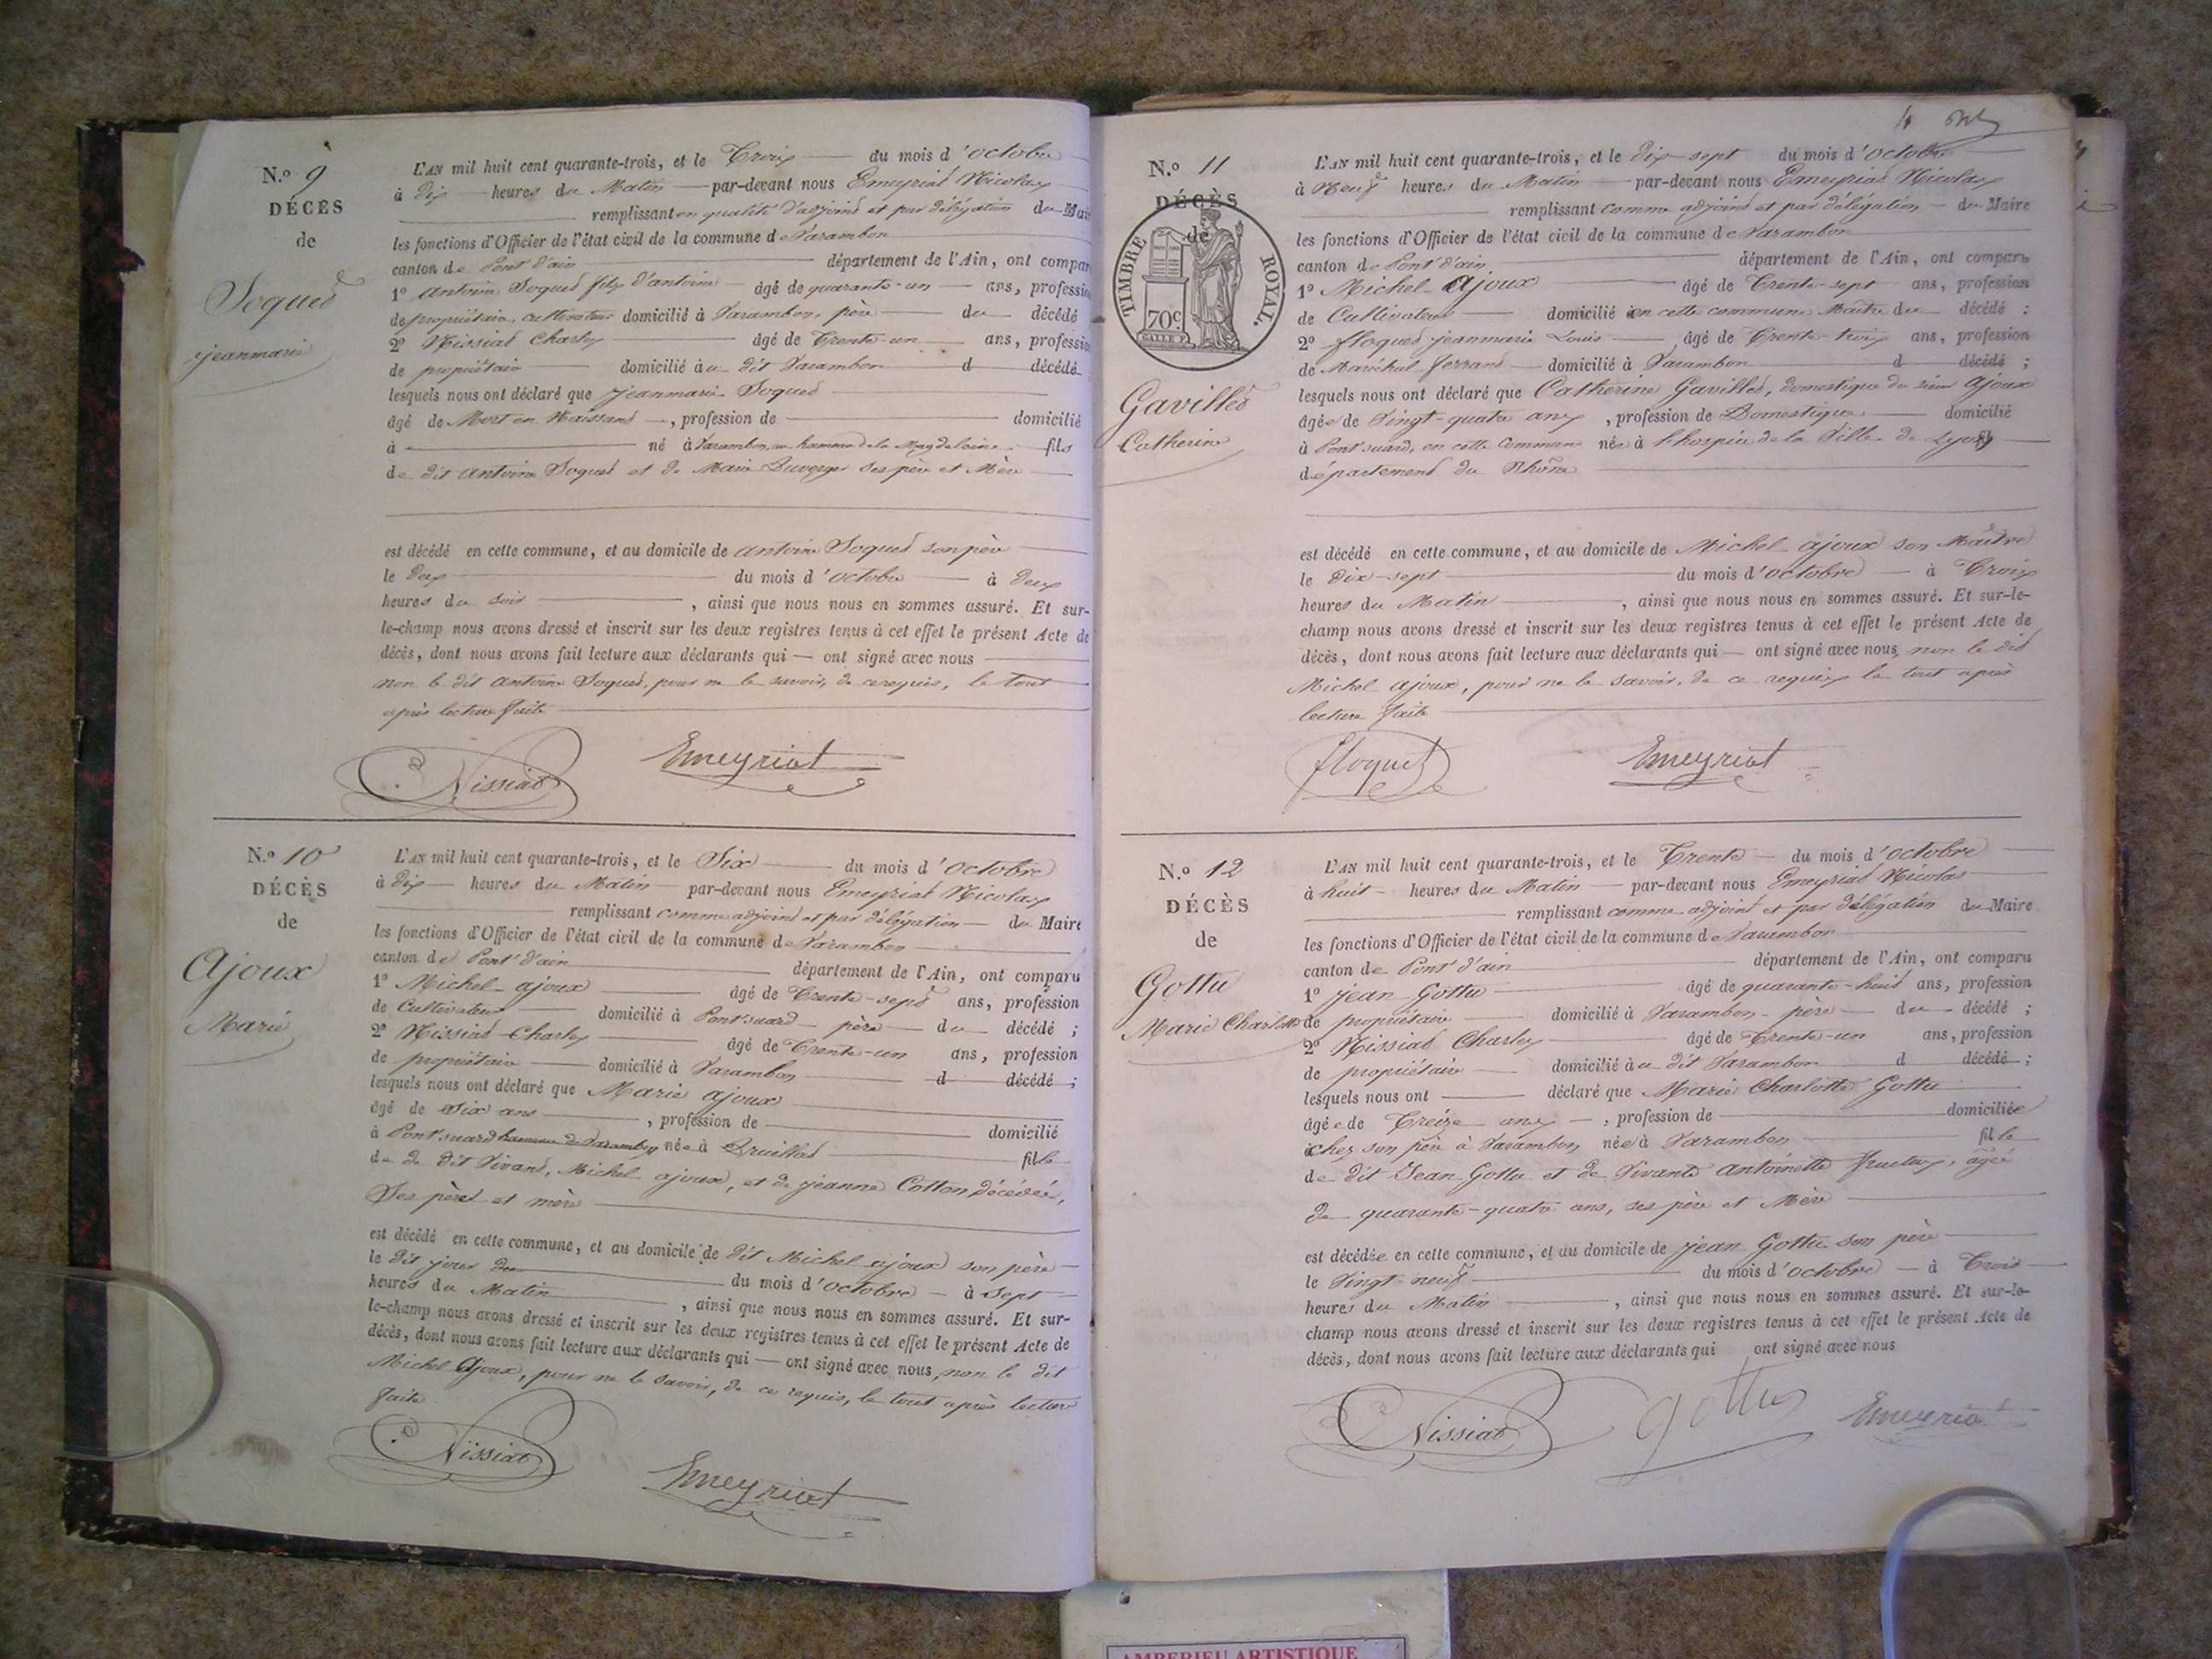 N.º 9
DÉCÈS
de
Soqued
jeanmarie
L'AN mil huit cent quarante-trois, et le Trois du mois d'octobre
à dix heures du Matin par-devant nous Emeyriat Nicolas
remplissant en qualité d'adjoind et par délégation du Mair
les fonctions d'Officier de l'état civil de la commune de Varambon
canton de Pont d'ain département de l'Ain, ont compar
1º antoine Soqued fils d'antoine âgé de quarante-un ans, professio
de propriétaire cultivateur domicilié à Varambon, père du décédé
2º Nissiat Charles âgé de Trente-un ans, professio
de propriétaire domicilié au dit Varambon d décédé
lesquels nous ont déclaré que jeanmarie Soqued
âgé de Mort en Naissand, profession de domicilié
à né à Varambon, au hameau de la Magdelaine fils
de dit antoine Soqued et de Marie Duverger ses père et Mère
est décédé en cette commune, et au domicile de antoine Soqued son père
le deux du mois d'octobre à deux
heures du soir, ainsi que nous nous en sommes assuré. Et sur-
le-champ nous avons dressé et inscrit sur les deux registres tenus à cet effet le présent Acte de
décès, dont nous avons fait lecture aux déclarants qui — ont signé avec nous
non le dit antoine Soqued, pour ne le savoir, de ce requis, le tout
après lecture faite
Nissiat Emeyriat
N.º 10
DÉCÈS
de
Ajoux
Marie
L'AN mil huit cent quarante-trois, et le Six du mois d'octobre
à dix heures du Matin par-devant nous Emeyriat Nicolas
remplissant comme adjoind et par délégation du Maire
les fonctions d'Officier de l'état civil de la commune de Varambon
canton de Pont d'ain département de l'Ain, ont comparu
1º Michel ajoux âgé de Trente-sept ans, profession
de Cultivateur domicilié à Pont suard père du décédé ;
2º Nissiat Charles âgé de Trente-un ans, profession
de propriétaire domicilié à Varambon d décédé ;
lesquels nous ont déclaré que Marie ajoux
âgé de Six ans, profession de domicilié
à Pont suard hameau de Varambon née à Druillat fille
de de dit Vivand, Michel ajoux, et de jeanne Cotton décédée,
Ses père et mère
est décédé en cette commune, et au domicile de dit Michel ajoux son père
le dit jour du mois d'octobre à sept
heures du Matin, ainsi que nous nous en sommes assuré. Et sur-
le-champ nous avons dressé et inscrit sur les deux registres tenus à cet effet le présent Acte de
décès, dont nous avons fait lecture aux déclarants qui — ont signé avec nous, non le dit
Michel Ajoux, pour ne le savoir, de ce requis, le tout après lecture
faite
Nissiat Emeyriat
4
N.º 11
DÉCÈS
de
TIMBRE ROYAL.
70c
Gavilled
Catherine
L'AN mil huit cent quarante-trois, et le dix sept du mois d'octobre
à Neuf heures du Matin par-devant nous Emeyriat Nicolas
remplissant comme adjoind et par délégation du Maire
les fonctions d'Officier de l'état civil de la commune de Varambon
canton de Pont d'ain département de l'Ain, ont comparu
1º Michel Ajoux âgé de Trente-sept ans, profession
de Cultivateur domicilié en cette commune Maître du décédé ;
2º floqued jeanmarie Louis âgé de Trente-trois ans, profession
de Maréchal ferrand domicilié à Varambon d décédé ;
lesquels nous ont déclaré que Catherine Gavilled, domestique du sieur ajoux
âgée de Vingt-quatre ans, profession de Domestique domicilié
à Pont suard, en cette Commune née à l'hospice de la Ville de Lyon
département du Rhône
est décédé en cette commune, et au domicile de Michel ajoux son Maître
le Dix-sept du mois d'octobre à Trois
heures du Matin, ainsi que nous nous en sommes assuré. Et sur-le-
champ nous avons dressé et inscrit sur les deux registres tenus à cet effet le présent Acte de
décès, dont nous avons fait lecture aux déclarants qui — ont signé avec nous, non le dit
Michel ajoux, pour ne le savoir, de ce requis le tout après
lecture faite
floquet Emeyriat
N.º 12
DÉCÈS
de
Gottu
Marie Charlotte
L'AN mil huit cent quarante-trois, et le Trente du mois d'octobre
à huit heures du Matin par-devant nous Emeyriat Nicolas
remplissant comme adjoint et par délégation du Maire
les fonctions d'Officier de l'état civil de la commune de Varambon
canton de Pont d'ain département de l'Ain, ont comparu
1º jean Gottu âgé de quarante-huit ans, profession
de propriétaire domicilié à Varambon père du décédé ;
2º Nissiat Charles âgé de Trente-un ans, profession
de propriétaire domicilié au dit Varambon d décédé ;
lesquels nous ont déclaré que Marie Charlotte Gottu
âgée de Treize ans, profession de domiciliée
chez son père à Varambon née à Varambon fille
de dit Jean Gottu et de Vivante antoinette fructus, âgée
de quarante-quatre ans, ses père et Mère
est décédée en cette commune, et au domicile de jean Gottu son père
le Vingt-neuf du mois d'octobre à Trois
heures du Matin, ainsi que nous nous en sommes assuré. Et sur-le-
champ nous avons dressé et inscrit sur les deux registres tenus à cet effet le présent Acte de
décès, dont nous avons fait lecture aux déclarants qui ont signé avec nous
Nissiat gottu Emeyriat
AMBERIEU ARTISTIQUE